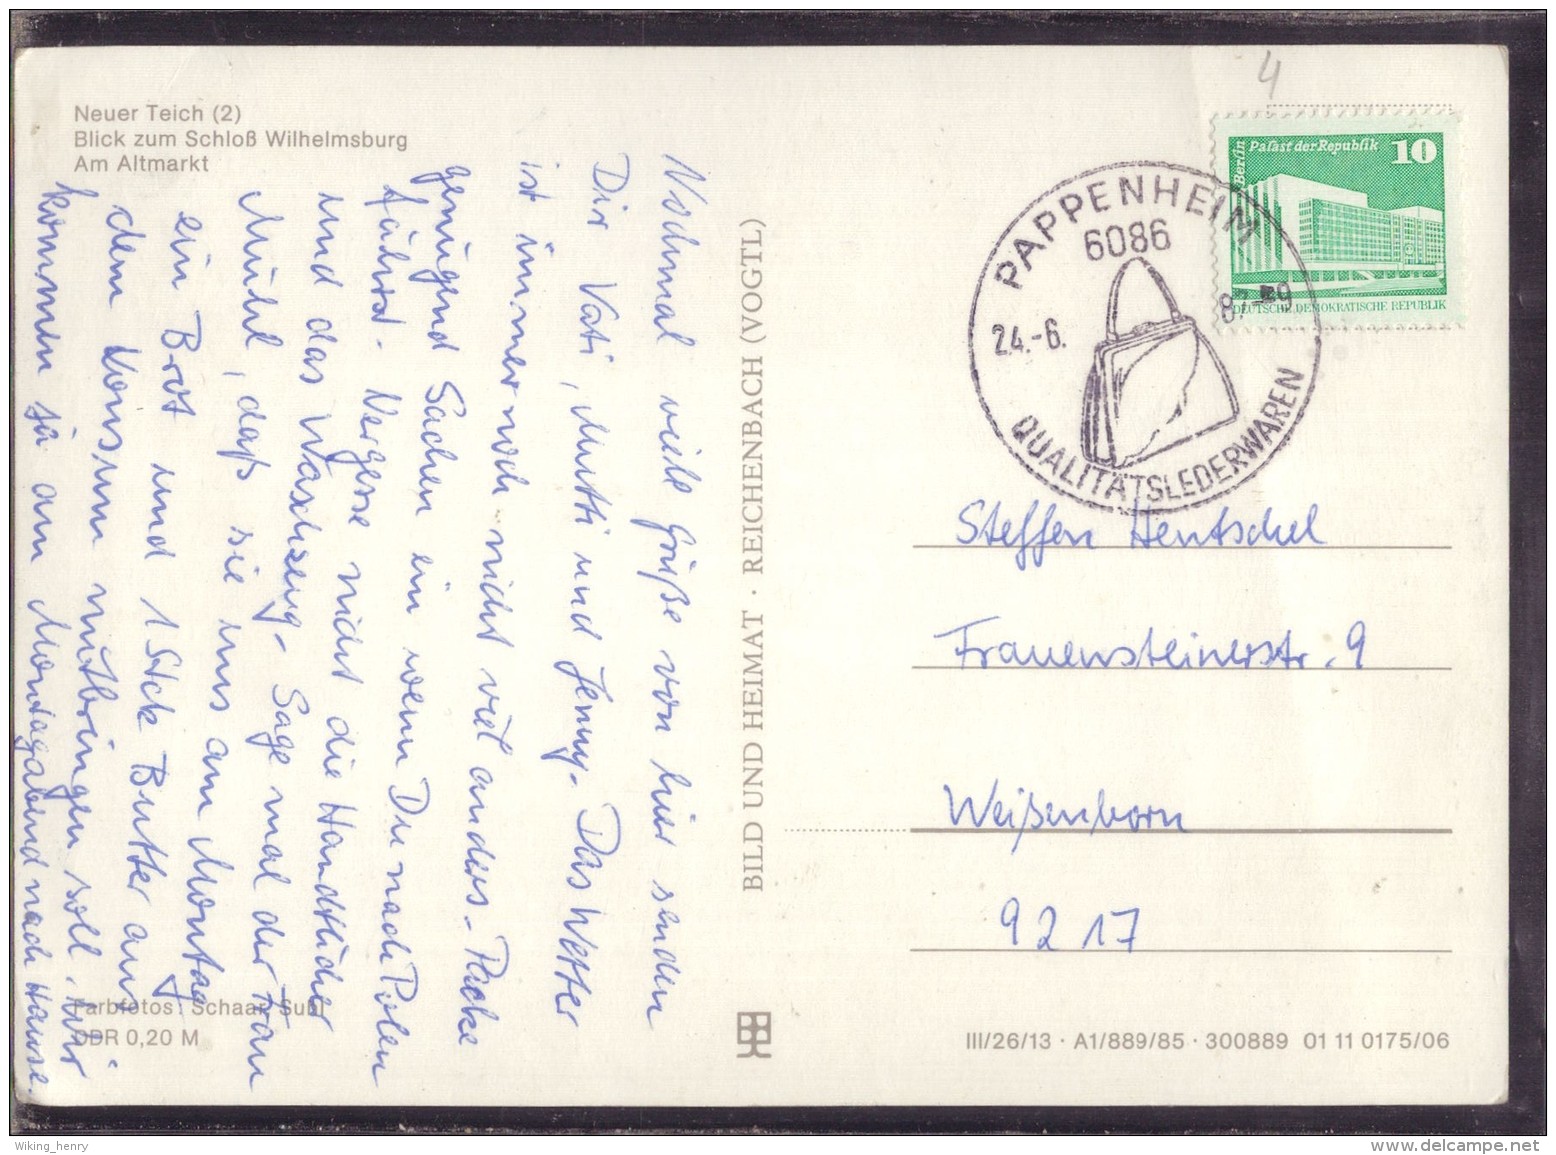 Neuer Teich (2)
Blick zum Schloß Wilhelmsburg
Am Altmarkt
Nochmal viele Grüße von hier senden
Dir Vati, Mutti und Jenny. Das Wetter
ist immer noch nicht viel anders. Packe
genügend Sachen ein wenn Du nach Polen
fährst. Vergesse nicht die Handtücher
und das Waschzeug. Sage mal der Frau
Mühl, daß sie uns am Montag
ein Brot und 1 Stck Butter aus
dem Konsum mitbringen soll. Wir
kommen ja am Montagabend nach Hause.
Farbfotos: Schaar, Suhl
DDR 0,20 M
BILD UND HEIMAT · REICHENBACH (VOGTL)
4
Berlin
Palast der Republik
10
DEUTSCHE DEMOKRATISCHE REPUBLIK
PAPPENHEIM
6086
24.-6.
87-9
QUALITÄTSLEDERWAREN
Steffen Hentschel
Frauensteinerstr. 9
Weißenborn
9217
III/26/13 · A1/889/85 · 300889 01 11 0175/06
Wiking_henry
www.delcampe.net